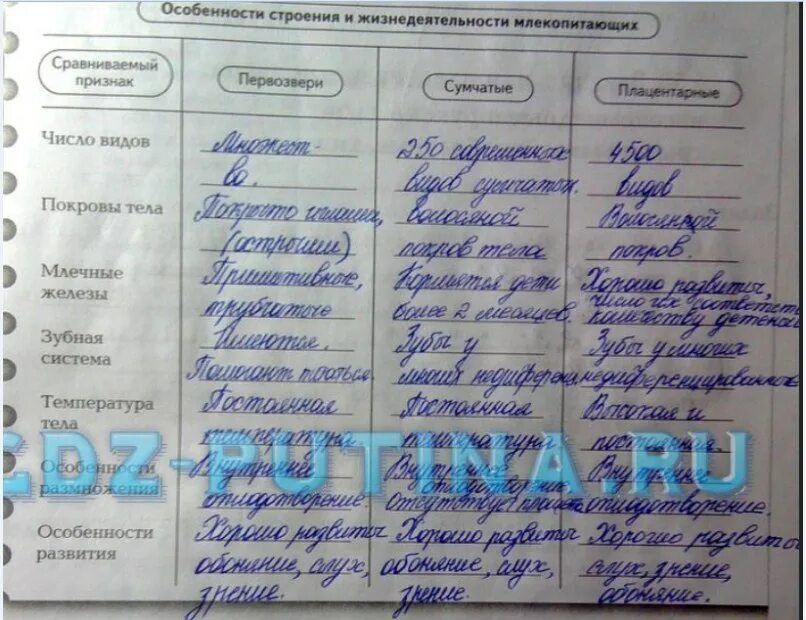 Особенности строения и жизнедеятельности млекопитающих
Сравниваемый признак Первозвери Сумчатые Плацентарные
Число видов Множест- 250 современных 4500
ва. видов сумчатых. видов
Покровы тела Покрыто иглами, волосяной Волосяной
(острыми) покров тела покров.
Млечные Примитивные, Кормятся дети Хорошо развиты,
железы трубчатые более 2 месяцев. число их соответств
количеству детенышей
Зубная Имеются. Зубы у Зубы у многих
система Помогают многих недиференц недиференцированные
Температура Постоянная Постоянная Высокая и
тела температура. температура постоянная.
Особенности Внутреннее Внутреннее Внутреннее
размножения оплодотворение. оплодотворение, оплодотворение.
отсутствует плацента
Особенности Хорошо развиты Хорошо развиты Хорошо развиты
развития обоняние, слух, обоняние, слух, слух, зрение,
зрение. зрение. обоняние.
GDZ-PUTINA.RU